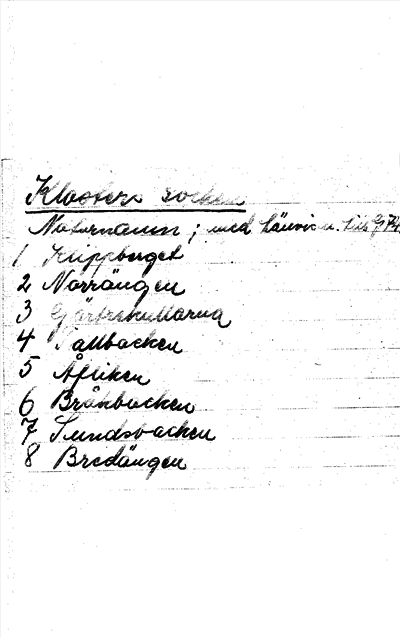 Klosters socken
Naturnamn; med hänvisn. till
1 Klippberget
2 Norrängen
3
4 Tallbacken
5 Åfliken
6 Bråtbacken
7 Sundsbacken
8 Bredängen